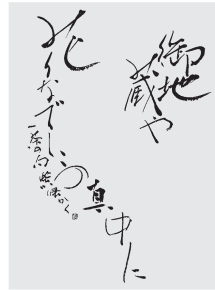 御地
蔵や
花なでしこの
真中に
一茶の句